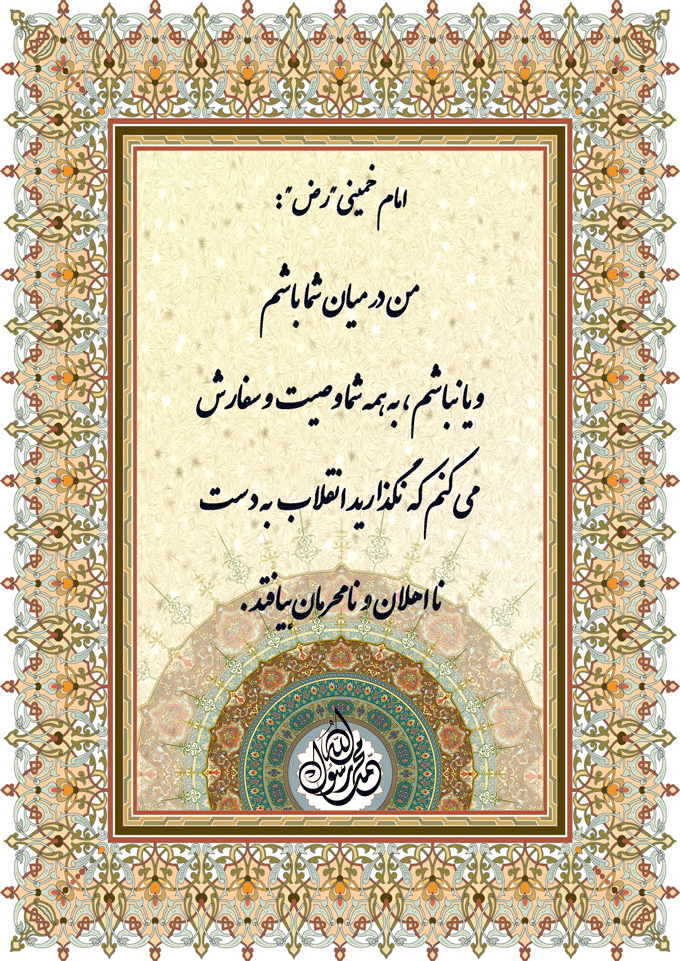 امام خمینی "رض" :
من در میان شما باشم
و یا نباشم ، به همه شما وصیت و سفارش
می کنم که نگذارید انقلاب به دست
نا اهلان و نامحرمان بیافتد .
محمد رسول الله